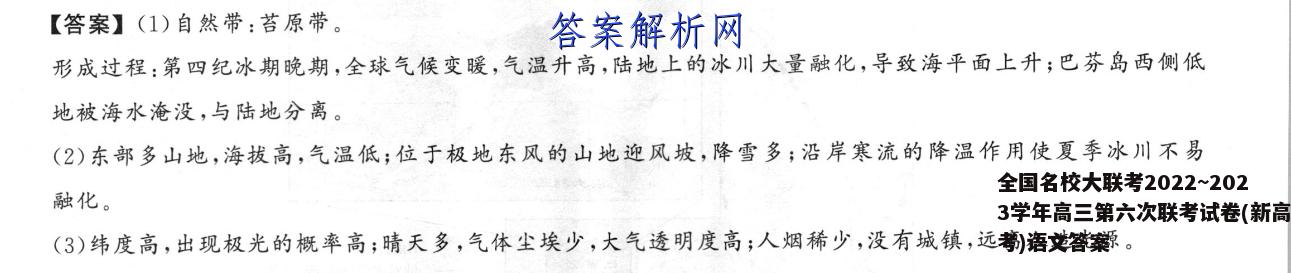 【答案】(1)自然带:苔原带。
答案解析网
形成过程:第四纪冰期晚期,全球气候变暖,气温升高,陆地上的冰川大量融化,导致海平面上升;巴芬岛西侧低
地被海水淹没,与陆地分离。
(2)东部多山地,海拔高,气温低;位于极地东风的山地迎风坡,降雪多;沿岸寒流的降温作用使夏季冰川不易
融化。
全国名校大联考2022~202
3学年高三第六次联考试卷(新高
考)语文答案
(3)纬度高,出现极光的概率高;晴天多,气体尘埃少,大气透明度高;人烟稀少,没有城镇,远源。